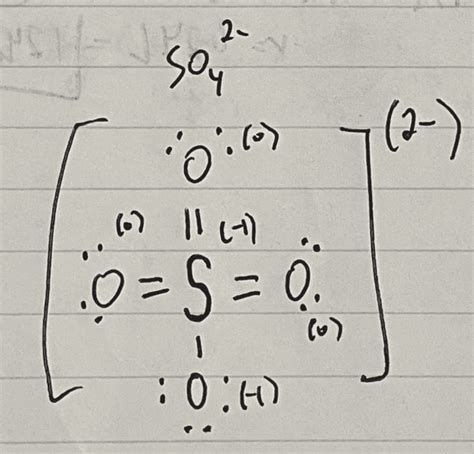 SO₄²⁻
(2-)
:O: (0)
(0) || (-1)
:O = S = O:
(0)
|
:O: (-1)